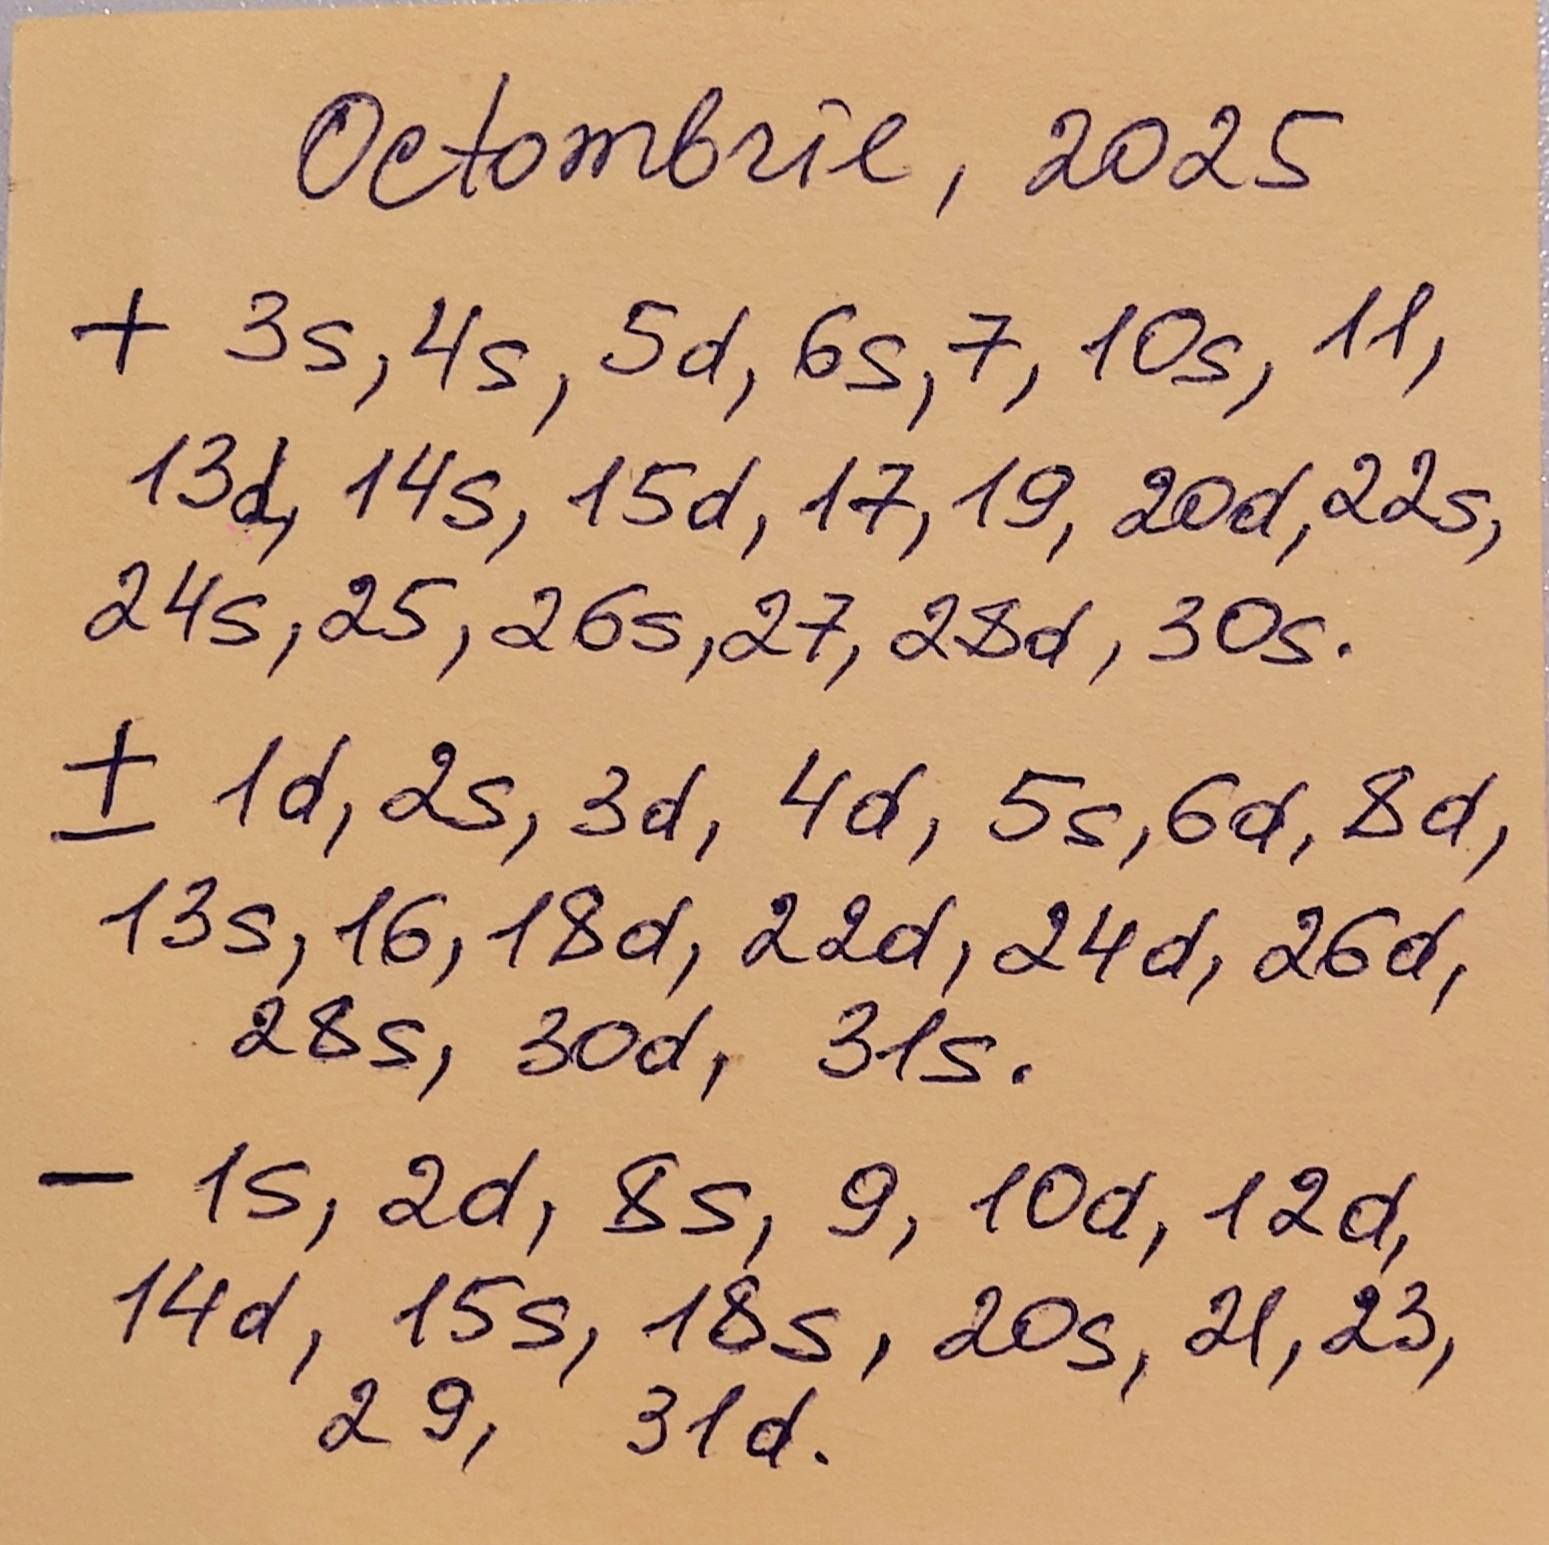 Octombrie, 2025
+ 3s, 4s, 5d, 6s, 7, 10s, 11,
13d, 14s, 15d, 17, 19, 20d, 22s,
24s, 25, 26s, 27, 28d, 30s.
± 1d, 2s, 3d, 4d, 5s, 6d, 8d,
13s, 16, 18d, 22d, 24d, 26d,
28s, 30d, 31s.
- 1s, 2d, 8s, 9, 10d, 12d,
14d, 15s, 18s, 20s, 21, 23,
29, 31d.